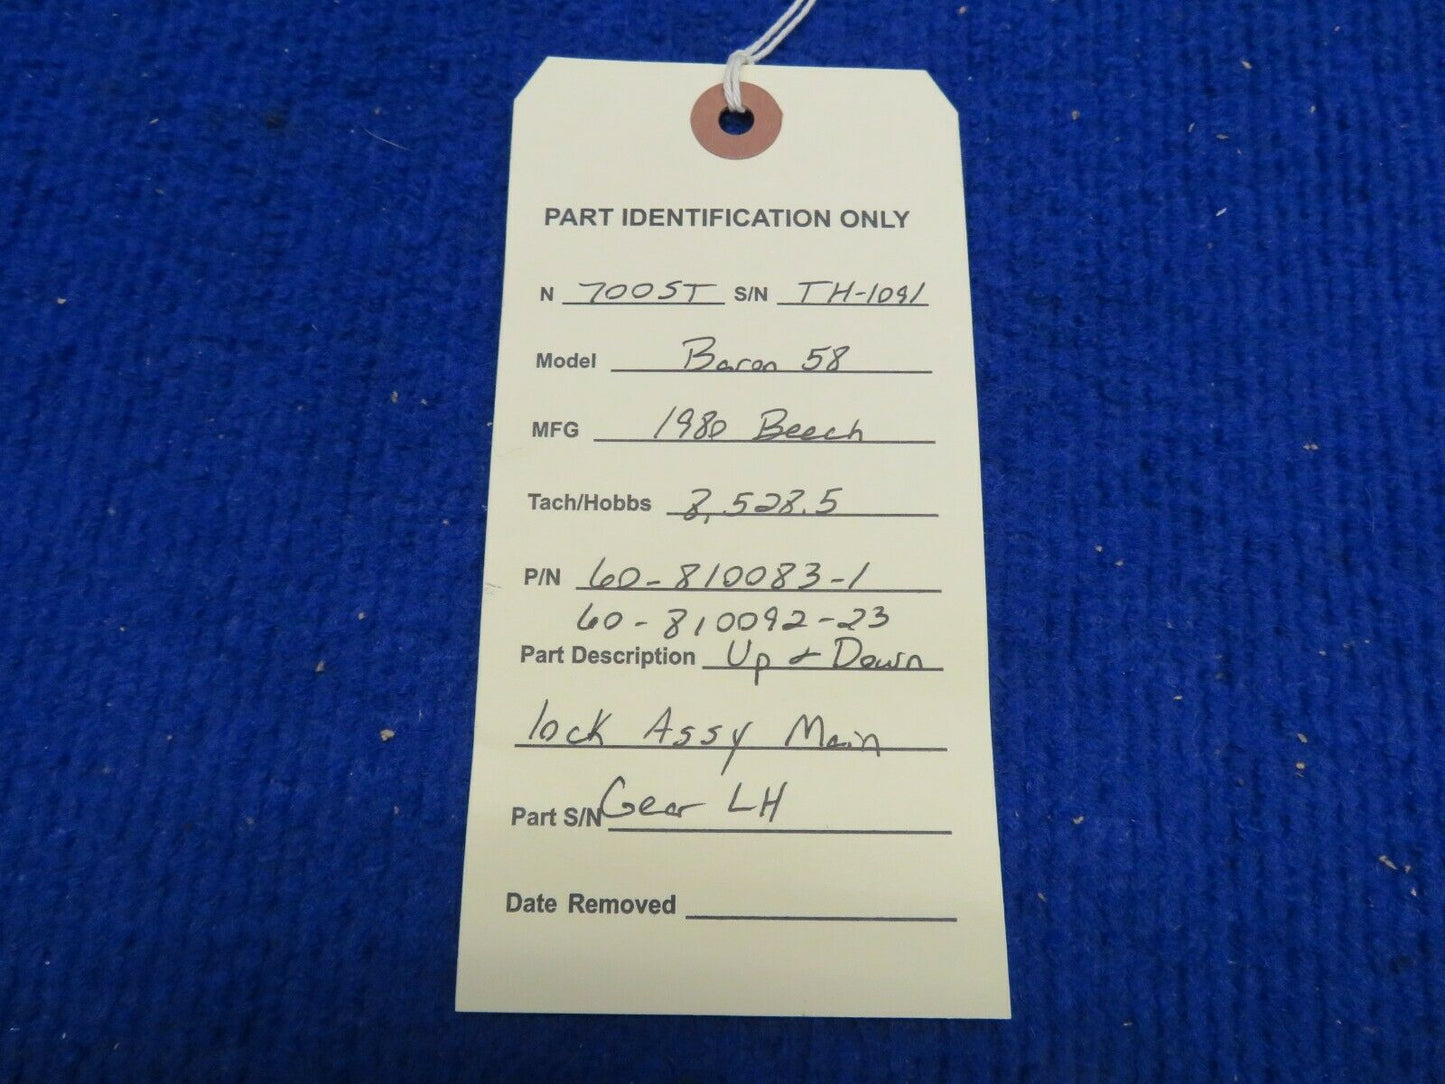 PART IDENTIFICATION ONLY
N 700ST S/N TH-1091
Model Baron 58
MFG 1980 Beech
Tach/Hobbs 8,528.5
P/N 60-810083-1
60-810092-23
Part Description Up & Down
lock Assy Main
Part S/N Gear LH
Date Removed